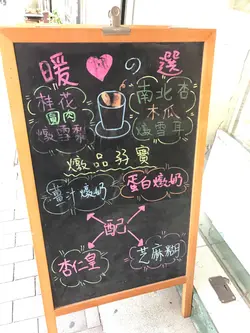 暖の選
桂花
圓肉
燉雪梨
南北杏
木瓜
燉雪耳
燉品孖寶
薑汁燉奶
蛋白燉奶
配
杏仁皇
芝麻糊